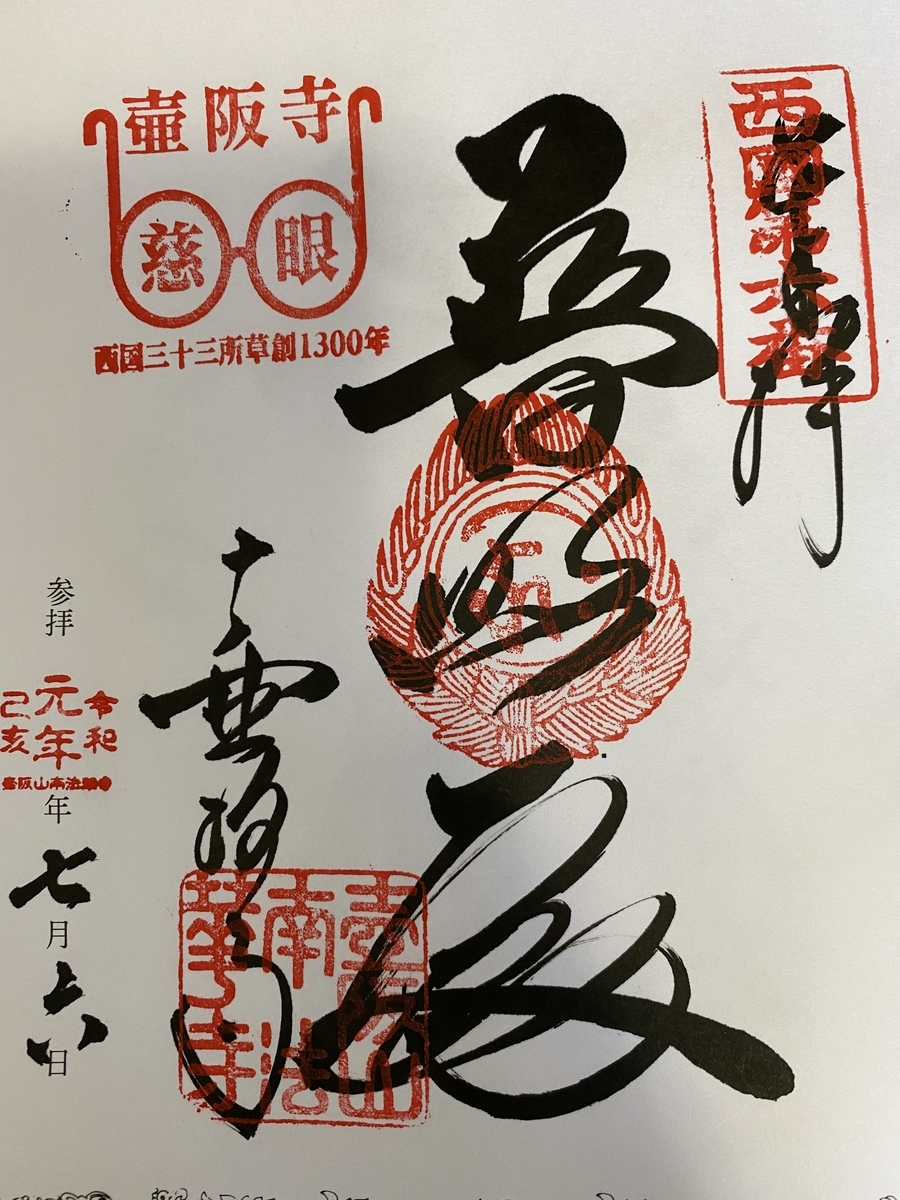 西國第六番
奉拝
普照殿
壷阪寺
慈眼
西国三十三所草創1300年
壷阪山
南法
華寺
参拝
令和
元年
己亥
壷阪山南法華寺
年
七
月
六
日